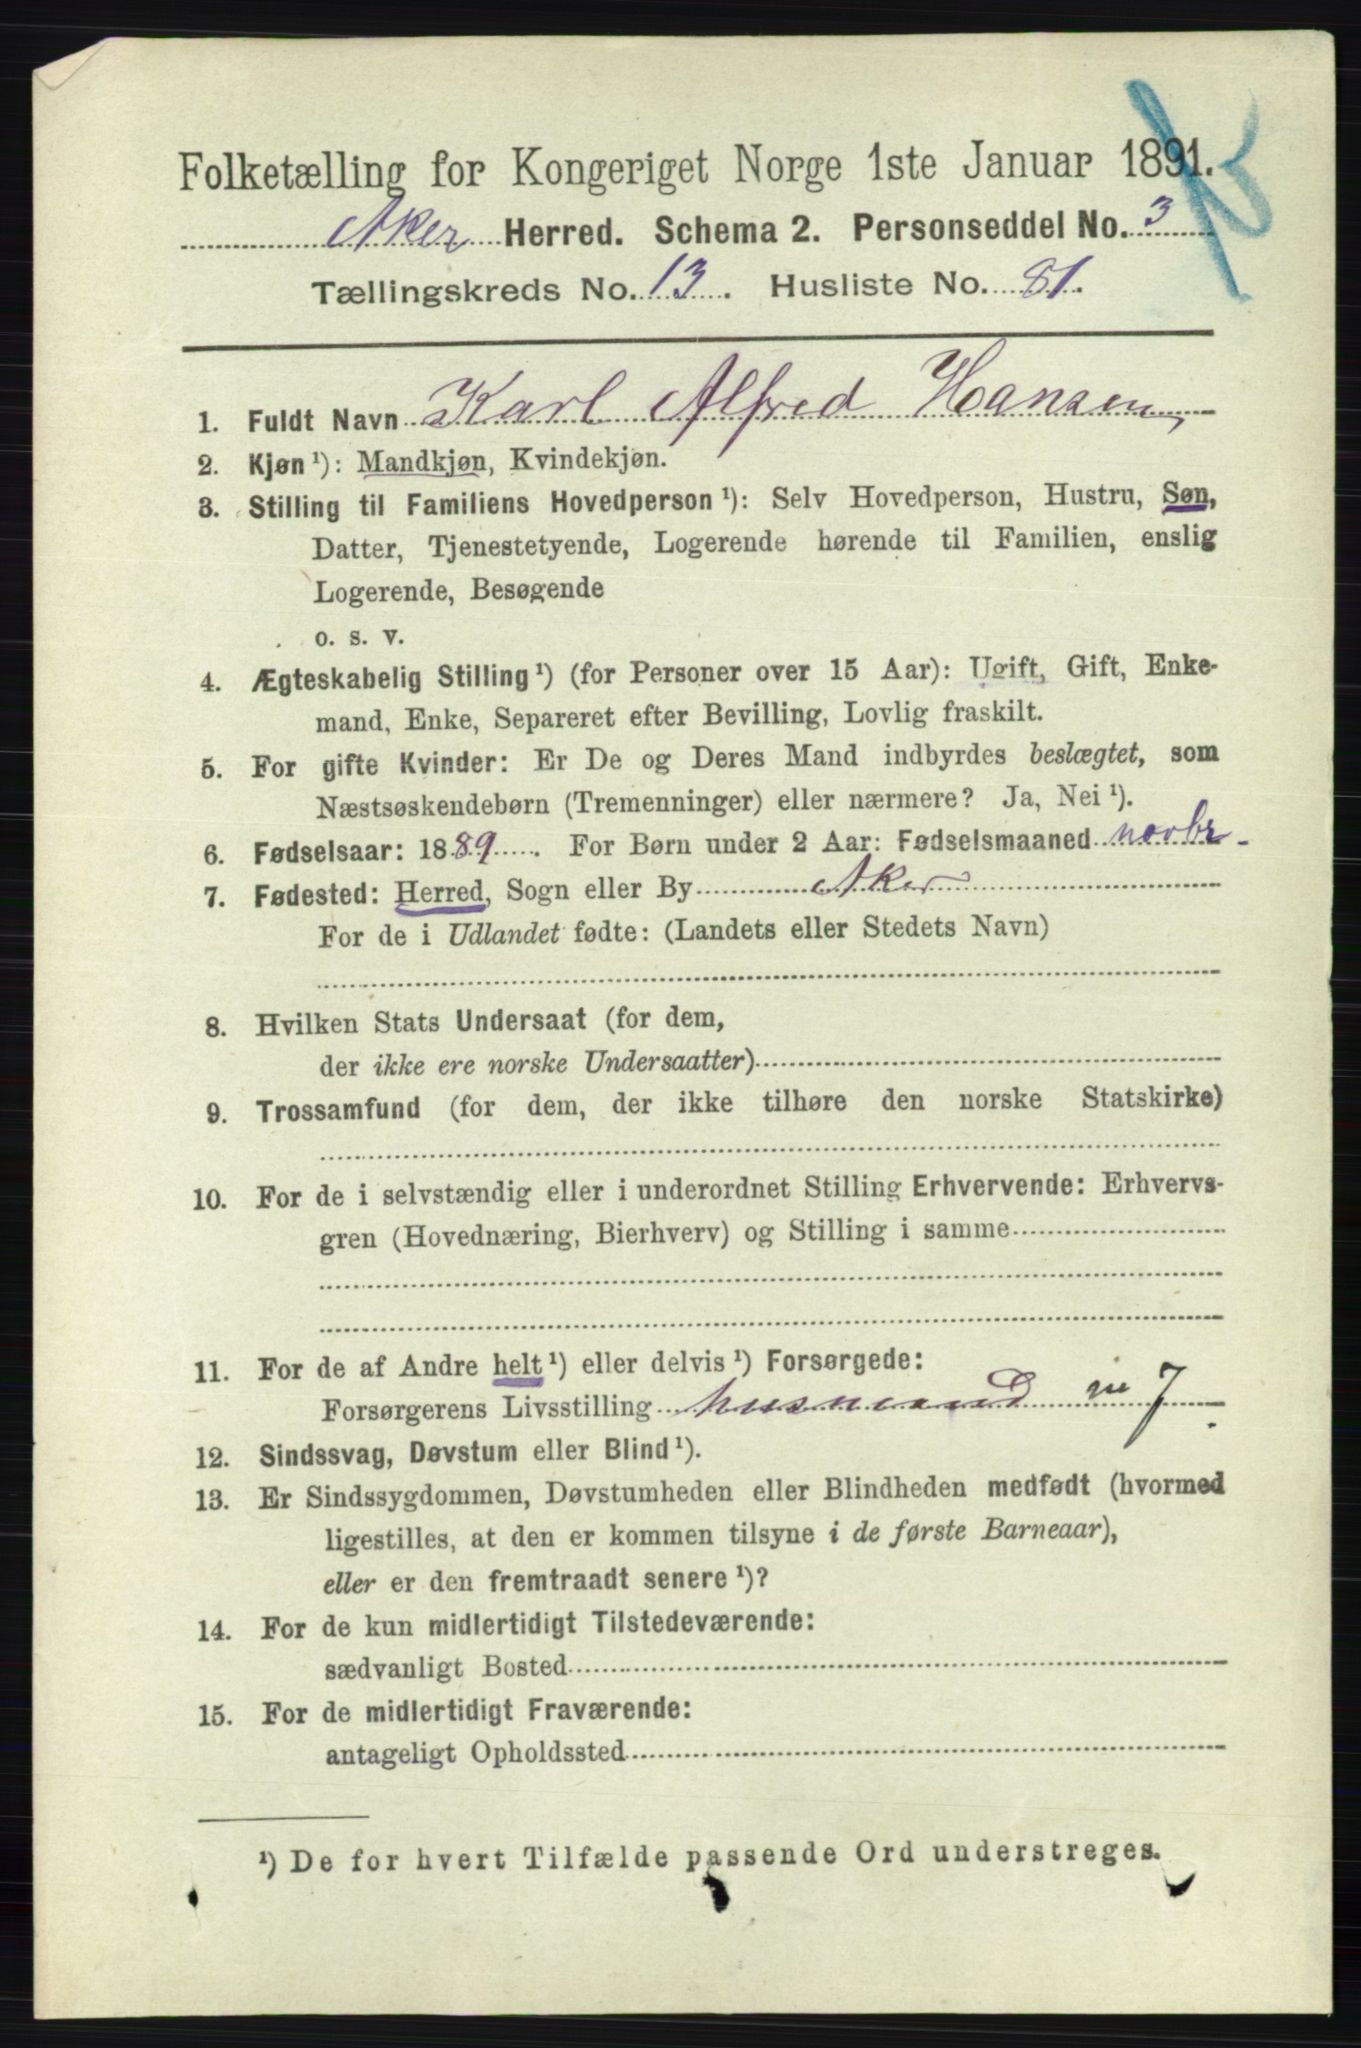 Folketælling for Kongeriget Norge 1ste Januar 1891.
Aker Herred. Schema 2. Personseddel No. 3
Tællingskreds No. 13. Husliste No. 81.
1. Fuldt Navn Karl Alfred Hansen,
2. Kjøn ¹): Mandkjøn, Kvindekjøn.
3. Stilling til Familiens Hovedperson ¹): Selv Hovedperson, Hustru, Søn,
Datter, Tjenestetyende, Logerende hørende til Familien, enslig
Logerende, Besøgende
o. s. v.
4. Ægteskabelig Stilling ¹) (for Personer over 15 Aar): Ugift, Gift, Enke-
mand, Enke, Separeret efter Bevilling, Lovlig fraskilt.
5. For gifte Kvinder: Er De og Deres Mand indbyrdes beslægtet, som
Næstsøskendebørn (Tremenninger) eller nærmere? Ja, Nei ¹).
6. Fødselsaar: 1889. For Børn under 2 Aar: Fødselsmaaned novbr
7. Fødested: Herred, Sogn eller By Aker
For de i Udlandet fødte: (Landets eller Stedets Navn)
8. Hvilken Stats Undersaat (for dem,
der ikke ere norske Undersaatter)
9. Trossamfund (for dem, der ikke tilhøre den norske Statskirke)
10. For de i selvstændig eller i underordnet Stilling Erhvervende: Erhvervs-
gren (Hovednæring, Bierhverv) og Stilling i samme
11. For de af Andre helt ¹) eller delvis ¹) Forsørgede:
Forsørgerens Livsstilling husmand m J.
12. Sindssvag, Døvstum eller Blind ¹).
13. Er Sindssygdommen, Døvstumheden eller Blindheden medfødt (hvormed
ligestilles, at den er kommen tilsyne i de første Barneaar),
eller er den fremtraadt senere ¹)?
14. For de kun midlertidigt Tilstedeværende:
sædvanligt Bosted
15. For de midlertidigt Fraværende:
antageligt Opholdssted
¹) De for hvert Tilfælde passende Ord understreges.